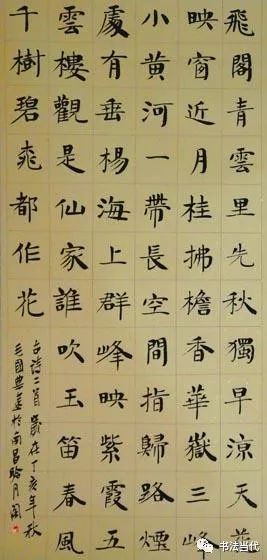 飛閣青雲里先秋獨早涼天花
映窗近月桂拂檐香華嶽三峰
小黃河一帶長空間指歸路煙
處有垂楊海上群峰映紫霞五
雲樓觀是仙家誰吹玉笛春風
千樹碧桃都作花
古詩二首歲在丁亥年秋
毛國典書於南昌月閣
书法当代